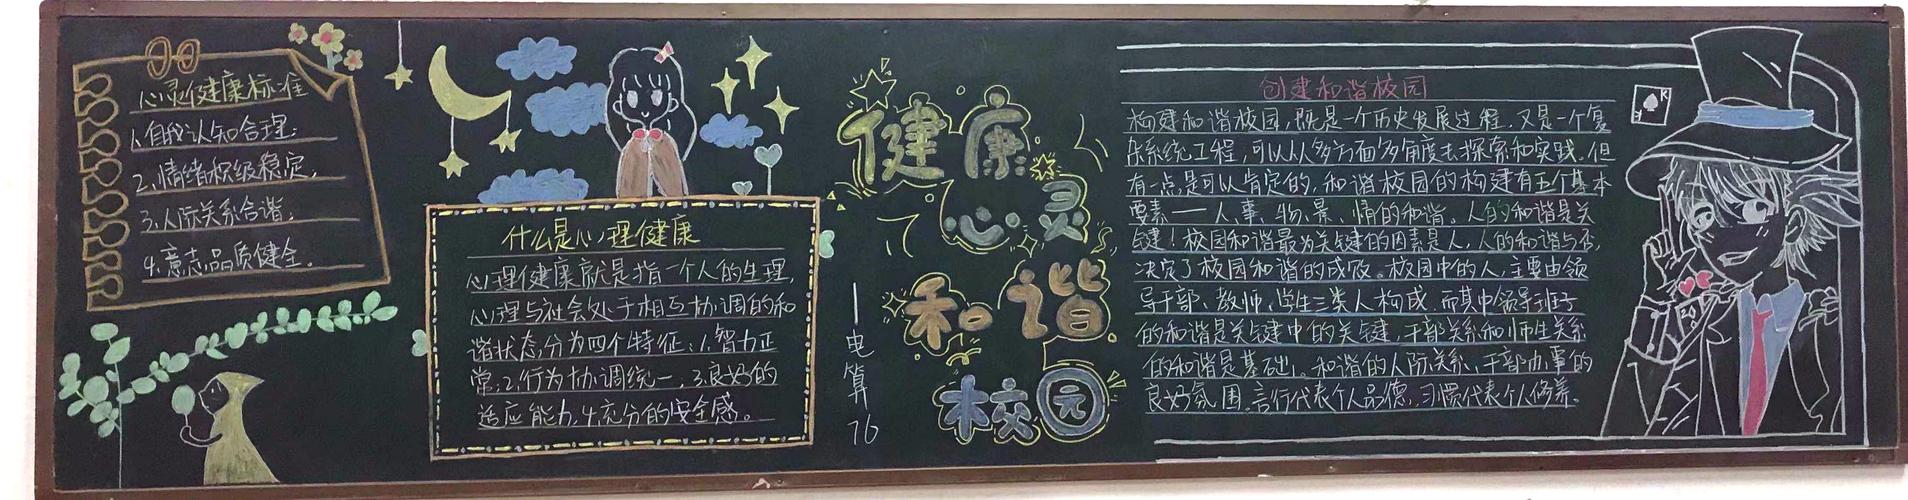 心灵健康标准
1.自我认知合理;
2.情绪积级稳定,
3.人际关系合谐,
4.意志品质健全。
什么是心理健康
心理健康就是指一个人的生理,
心理与社会处于相互协调的和
谐状态,分为四个特征:1.智力正
常;2.行为协调统一,3.良好的
适应能力,4.充分的安全感。
健康
心灵
和谐
校园
—电算76
K
创建和谐校园
构建和谐校园,既是一个历史发展过程,又是一个复
杂系统工程,可以从多方面多角度去探索和实践。但
有一点是可以肯定的,和谐校园的构建有五个基本
要素——人、事、物、景、情的和谐。人的和谐是关
键!校园和谐最为关键的因素是人,人的和谐与否,
决定了校园和谐的成败。校园中的人,主要由领
导干部、教师、学生三类人构成,而其中领导班子
的和谐是关键中的关键,干部关系和师生关系
的和谐是基础。和谐的人际关系,干部办事的
良好氛围。言行代表个人品德,习惯代表个人修养。